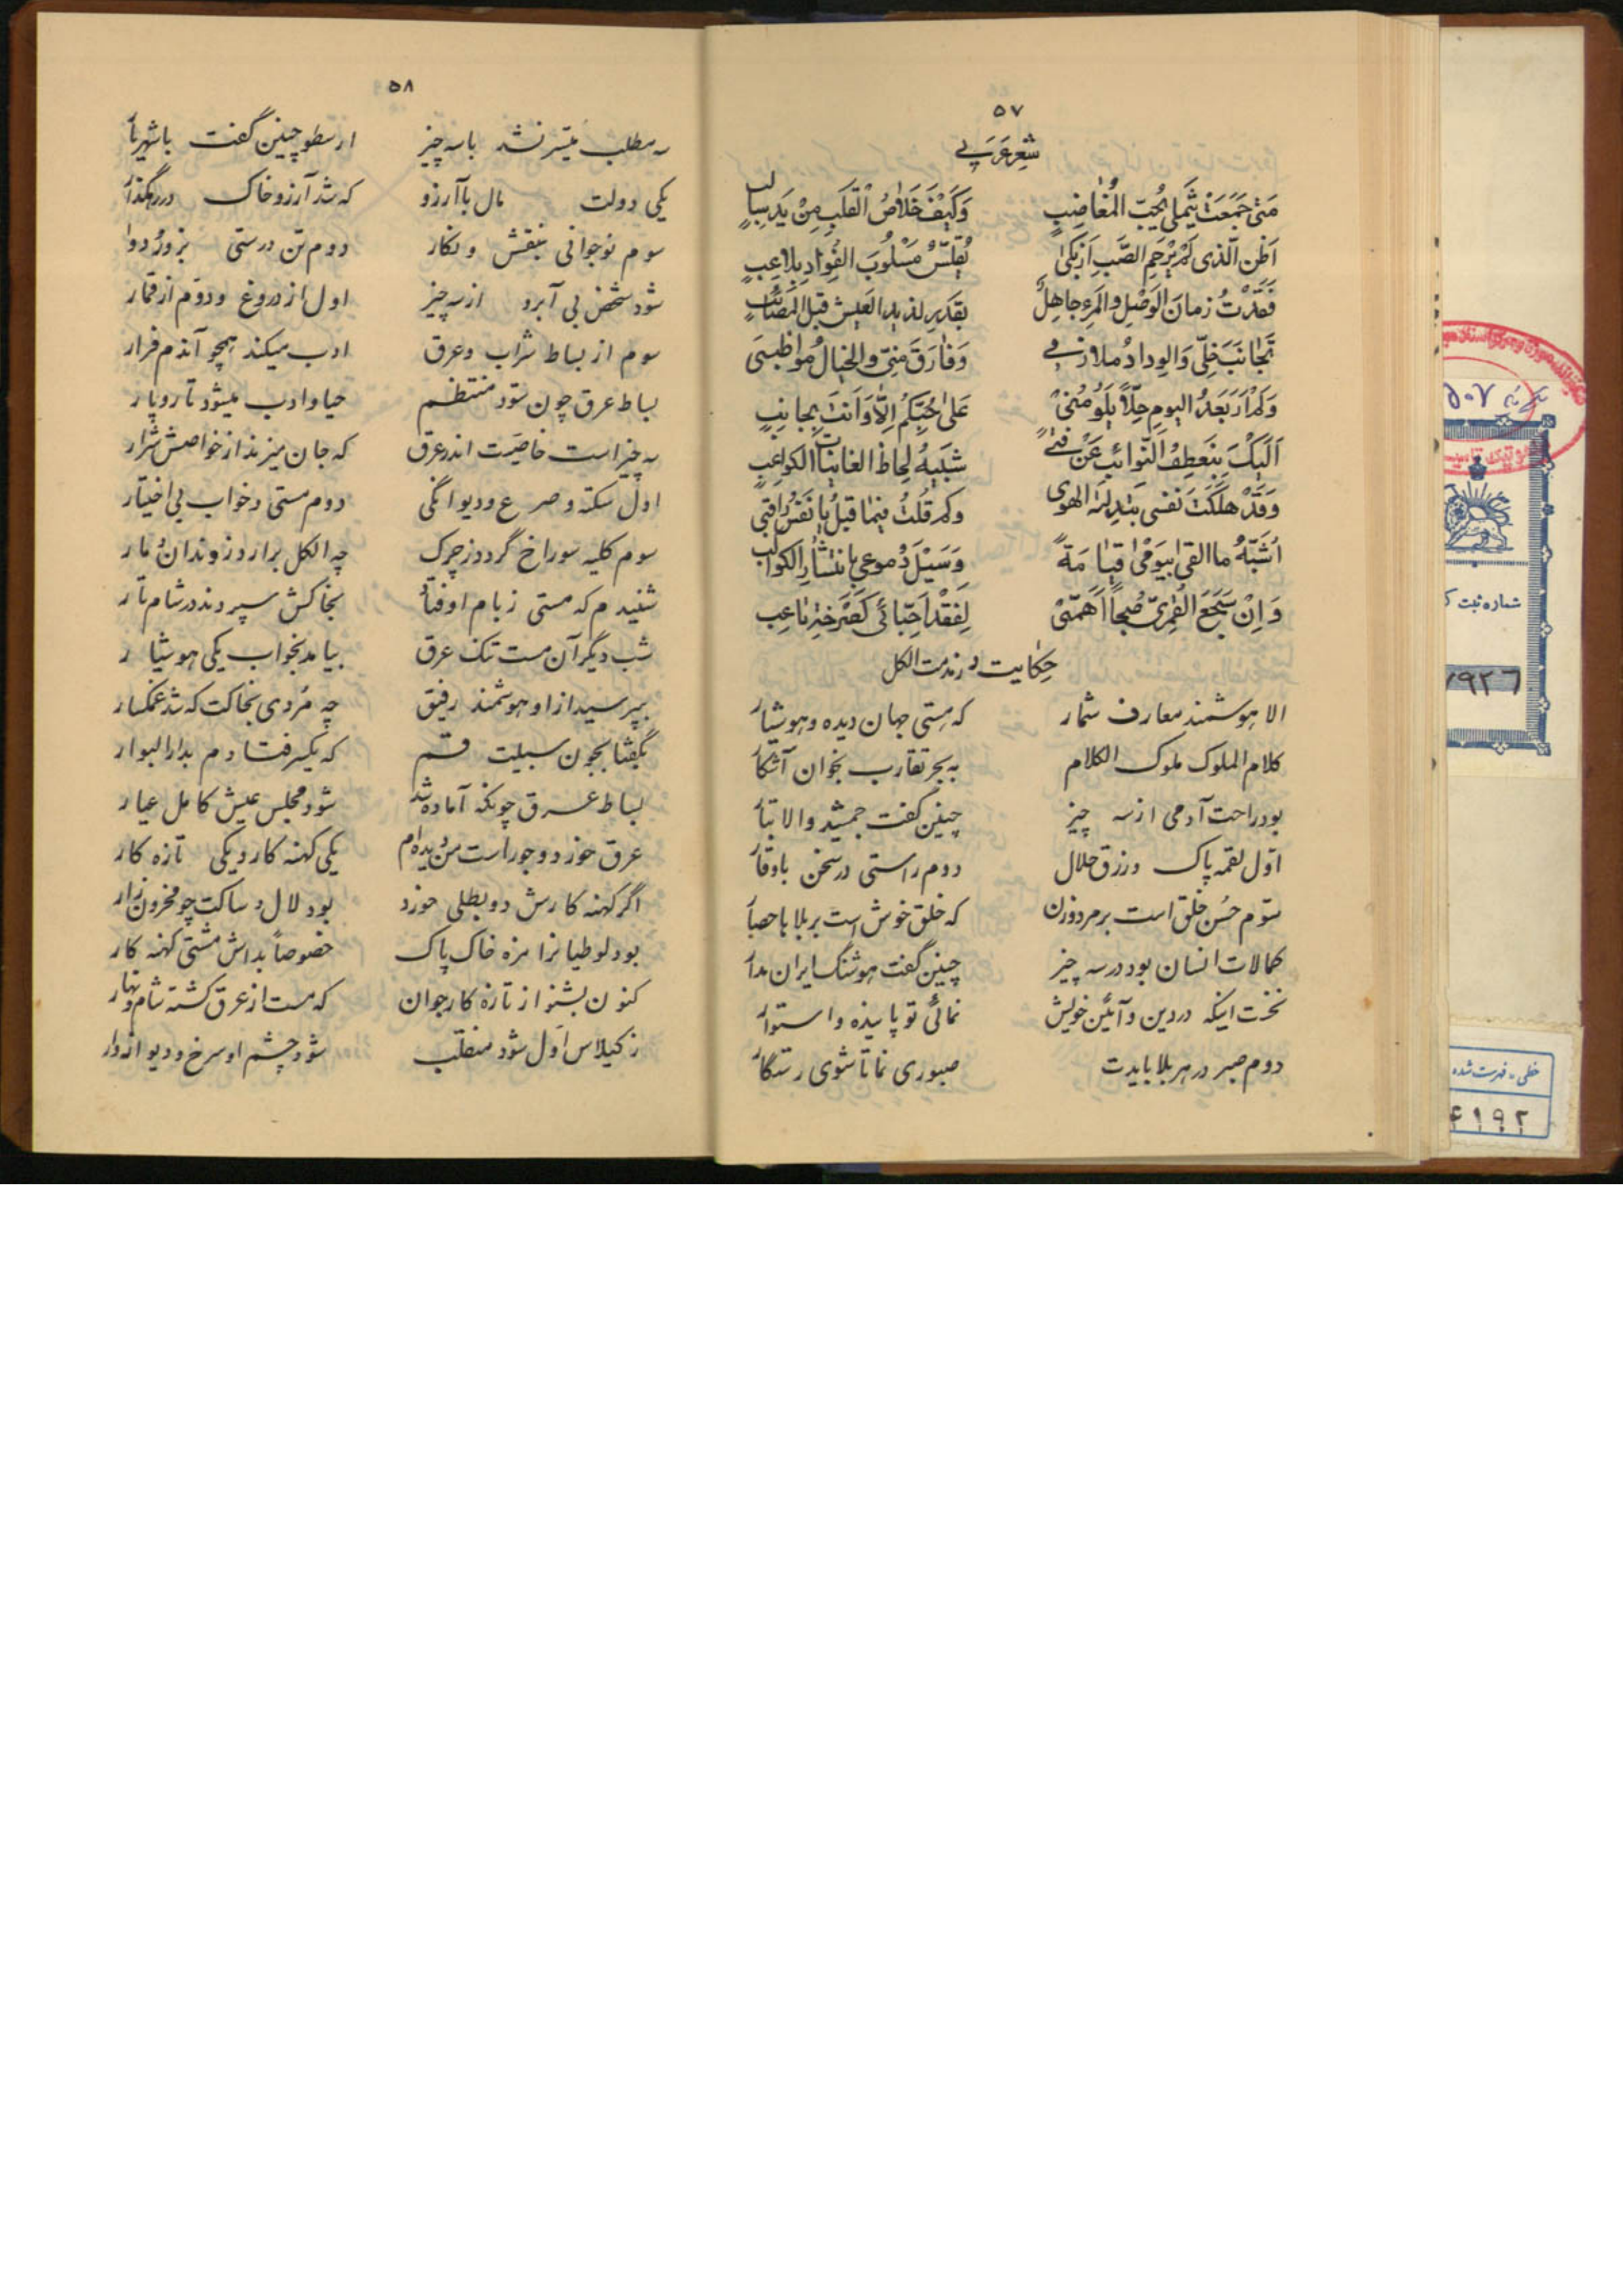 ۵۷
شِعرِ عَرَبی
مَتیٰ جَمَعَتْ شَملی بُحِبّ المُغاضِبِ وَکَیْفَ خَلاصُ الْقَلبِ مِنْ یَدِ
اَظُن الّذی لَمْ یَرْحَمِ الصَّبَ اِذ بَکیٰ مَسْلُوبَ الفُوادِ بِلاعِبِ
فَقَدْتُ زمانَ الوَصْلِ والمَرءِ جاهِلٌ بِقَدرِ لذیدِ العَیشِ قبلَ المَصائبِ
تَجانَبَ خِلّی وَالوِدادُ مُلازمی وَفارَقَ مِنّی والخیالُ مُواظبی
وَلَمْ اَرَ بَعدَ الیومِ خِلّاً یَلُومُنی عَلیٰ حُبِّکُم اِلّا وَاَنتَ بِجانِبِ
اَلَیکَ بِنَعطِفُ النّوائبِ عَنْ فتیً شَبیهُ لِحاظ الغانیات الکواعِبِ
وَقَدْ هَلَکَت نَفسی الهوی وکم قُلتُ فیما قبلُ یا نَفْسُ راقبی
اُشَبّهُ ما القی بیَومِ قیامَة وَسَیْلَ دُموعی بانتشارِ الکواکب
وَاِنْ سَجَعَ القُمریّ صُبحاً اَهَمّنی لِفَقْدِ اَحِبّائی کَصَرخة ناعِب
حکایت در مذمت الکل
الا هوشمند معارف شمار که هستی جهان دیده و هوشیار
کلام الملوک ملوک الکلام به بحر تقارب بخوان آشکار
بود راحت آدمی از سه چیز چنین گفت جمشید والا تبار
اوّل لقمه پاک و رزق حلال دوم راستی در سخن باوقار
سوّم حُسن خلق است بر مرد و زن که خلق خوش است بر بلا با حصار
کمالات انسان بود در سه چیز چنین گفت هوشنگ ایران مدار
نخست اینکه در دین و آئین خویش نمائی تو پاینده و استوار
دوم صبر در هر بلا بایدت صبوری نما تا شوی رستگار
۵۸
سه مطلب میّسر نشد با سه چیز ارسطو چنین گفت با شهریار
یکی دولت مال با آرزو که شد آرزو خاک در رهگذار
سوم نوجوانی بنقش و نگار دوم تن درستی بزور دوا
شود شخص بی آبرو از سه چیز اول از دروغ و دوّم از قمار
سوم از بساط شراب و عرق ادب میکند همچو آندم فرار
بساط عرق چون شود منتظم حیا و ادب میشود تار و پار
سه چیز است خاصیّت اندر عرق که جان میزند از خواصش شرار
اول سکته و صرع و دیوانگی دوم مستی و خواب بی اختیار
سوم کلیه سوراخ گردد ز چرک چه الکل برارد ز وندان مار
شنیدم که مستی ز بام اوفتاد بخاکش سپردند در شام تار
شب دیگر آن مست تنک عرق بیامد بخواب یکی هوشیار
بپرسید از او هوشمند رفیق چه مُردی بخاکت که شد غمگسار
بگفتا بجون سبیلت قسم که یکسر فتادم بدار البوار
بساط عرق چونکه آماده شد شود مجلس عیش کامل عیار
عرق خور دو جور است من دیده‌ام یکی کهنه کار و یکی تازه کار
اگر کهنه کارش دو بطلی خورد بود لال و ساکت چو محزون زار
بود لوطیانرا مزه خاک پاک خصوصاً بداش مشتی کهنه کار
کنون بشنو از تازه کار جوان که مست از عرق گشته شام و نهار
ز گیلاس اول شود منقلب شود چشم او سرخ و دیوانه‌وار
۵۰۷
شماره ثبت ک
۷۹۲۶
خطی - فهرست شده
۴۱۹۲